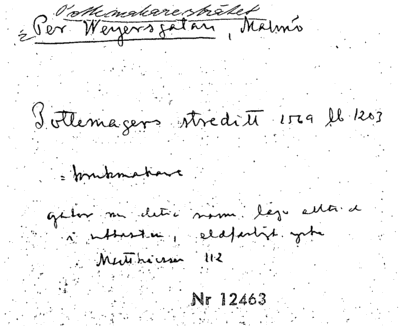 Pottemakaresträtet
= Per Weijersgatan, Malmö
Pottemagers streditt 1569 lb 1203
= krukmakare
gator m detta namn låga alltid
i utkanten, eldfarligt yrke
112
Nr 12463